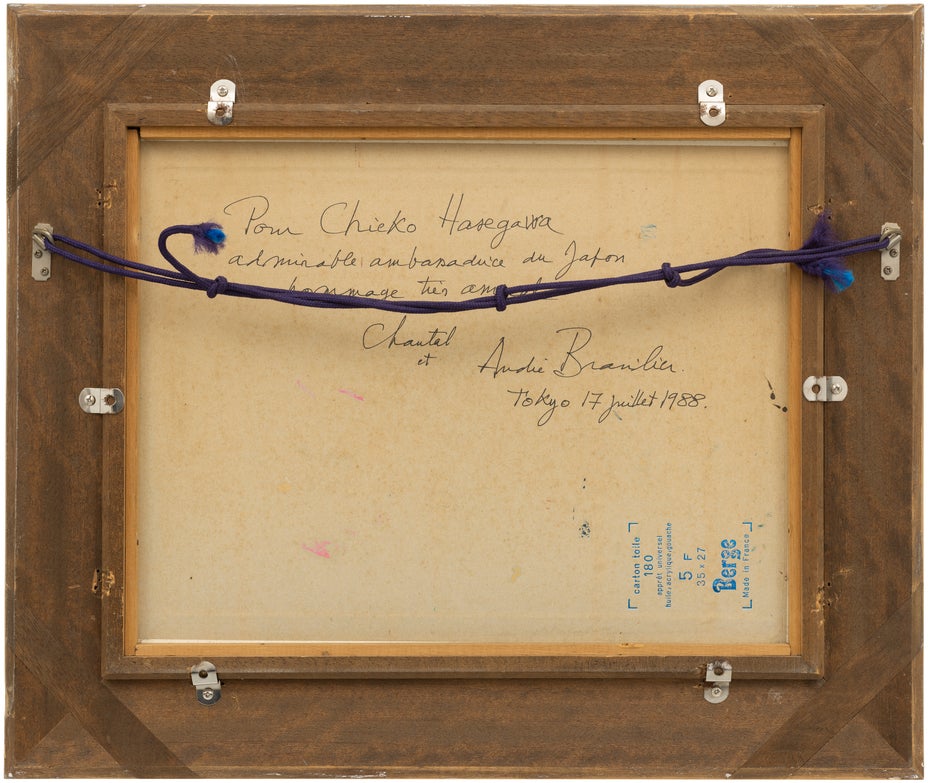 Pour Chieko Hasegawa
admirable ambassadrice du Japon
hommage très
Chantal
et
André Brasilier.
Tokyo 17 juillet 1988.
carton toile
180
apprêt universel
huile, acrylique, gouache
5 F
35 x 27
Berge
Made in France